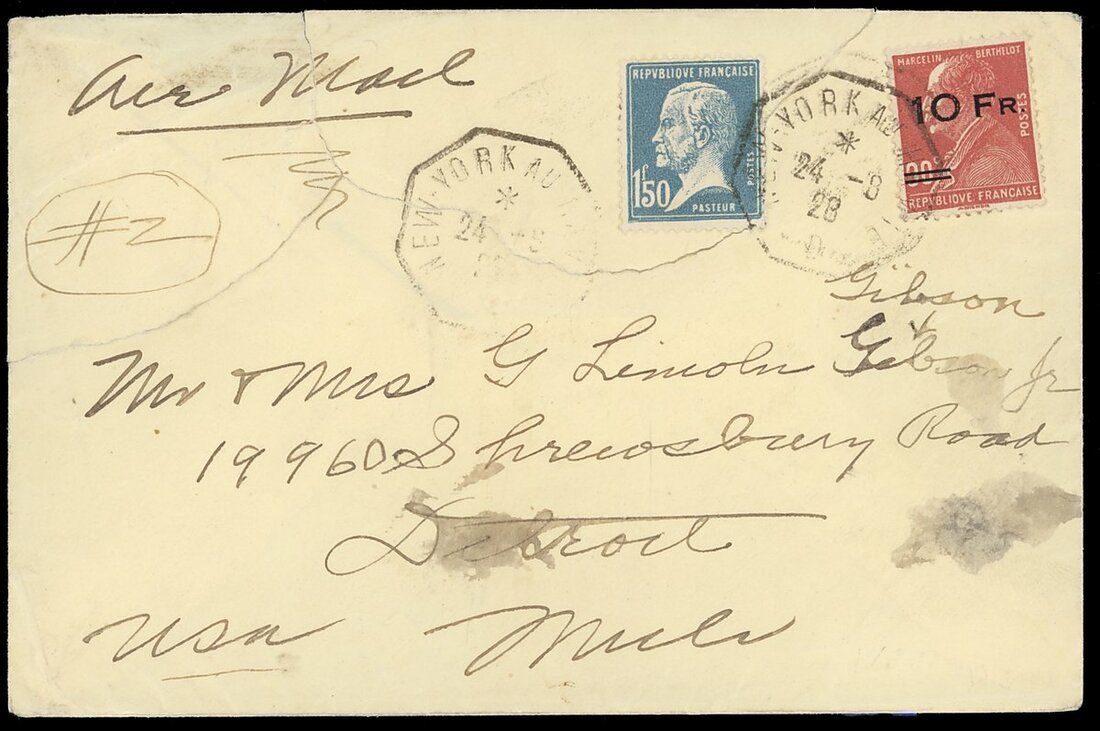 Air Mail
#2
REPVBLIQUE FRANÇAISE
1F50
POSTES
PASTEUR
MARCELIN BERTHELOT
10 FR.
90c
POSTES
REPVBLIQUE FRANÇAISE
NEW-YORK AU
*
24 -8
NEW-YORK AU
*
24 -8
28
Gibson
Mr & Mrs G Lincoln Gibson Jr
19960 Shrewsbury Road
Detroit
USA Mich